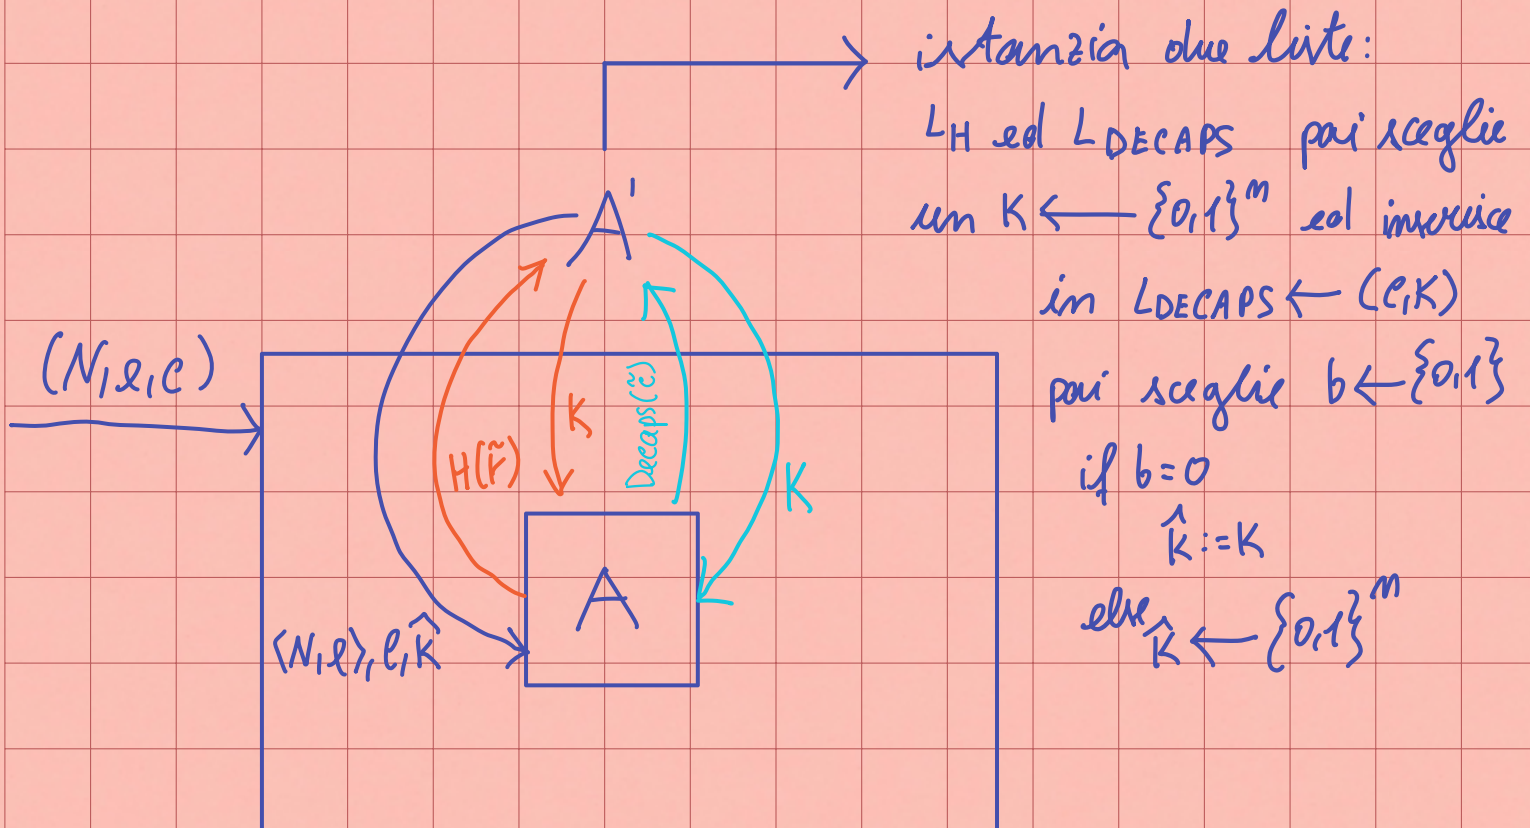 istanzia due liste:
L_H ed L_DECAPS poi sceglie
un K ← {0,1}^n ed inserisce
in L_DECAPS ← (c,K)
poi sceglie b ← {0,1}
if b=0
K̂ := K
else
K̂ ← {0,1}^n
A'
(N,e,c)
H(r̃)
K
Decaps(c̃)
K
A
⟨N,e⟩,c,K̂